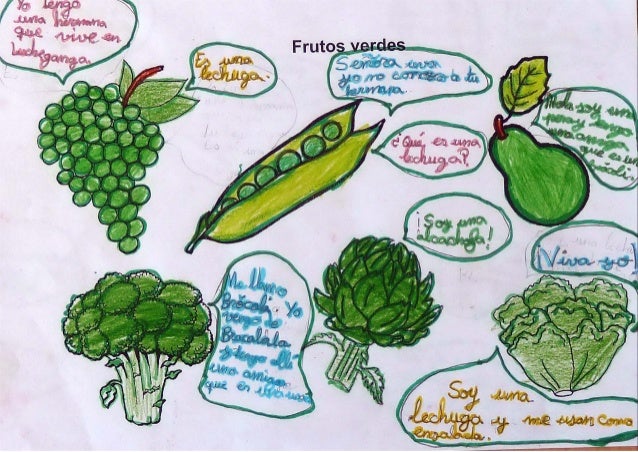 Yo tengo
una hermana
que vive en
Lechuganga.
Es una
lechuga.
Frutos verdes
Señora uva
yo no conozco a tu
hermana.
¿Qué es una
lechuga?
Hola soy una
pera y tengo
una amiga
que es un
¡Soy una
alcachofa!
¡Viva yo!
Me llamo
Brócoli. Yo
vengo de
Brocolala
y tengo allí
una amiga
que es una
Soy una
lechuga y me usan como
ensalada.